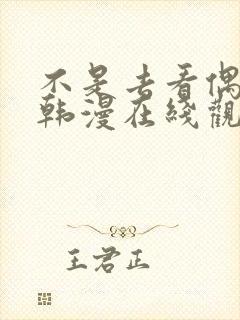 不是去看偶
韩漫在线觀
王君正